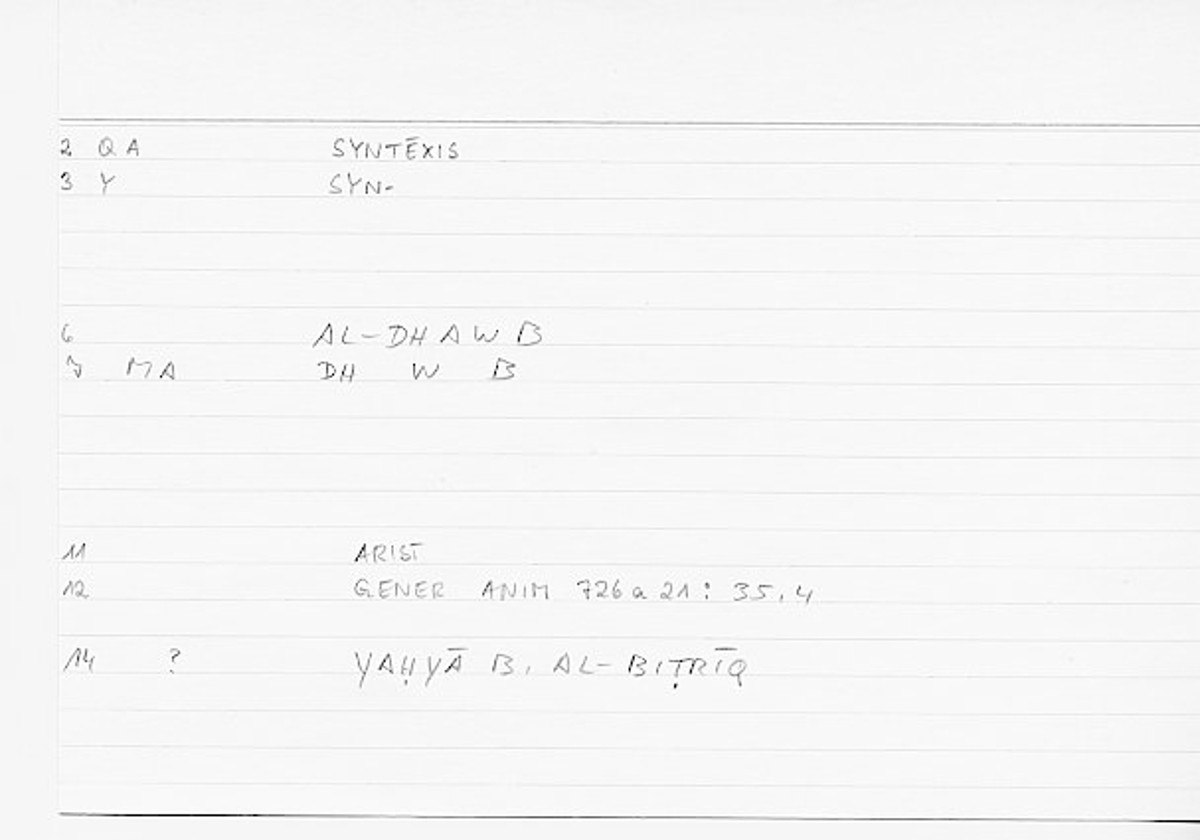 2 QA SYNTĒXIS
3 Y SYN-
6 AL-DHAWB
7 MA DH W B
11 ARIST
12 GENER ANIM 726a21: 35.4
14 ? YAḤYĀ B. AL-BIṬRĪQ